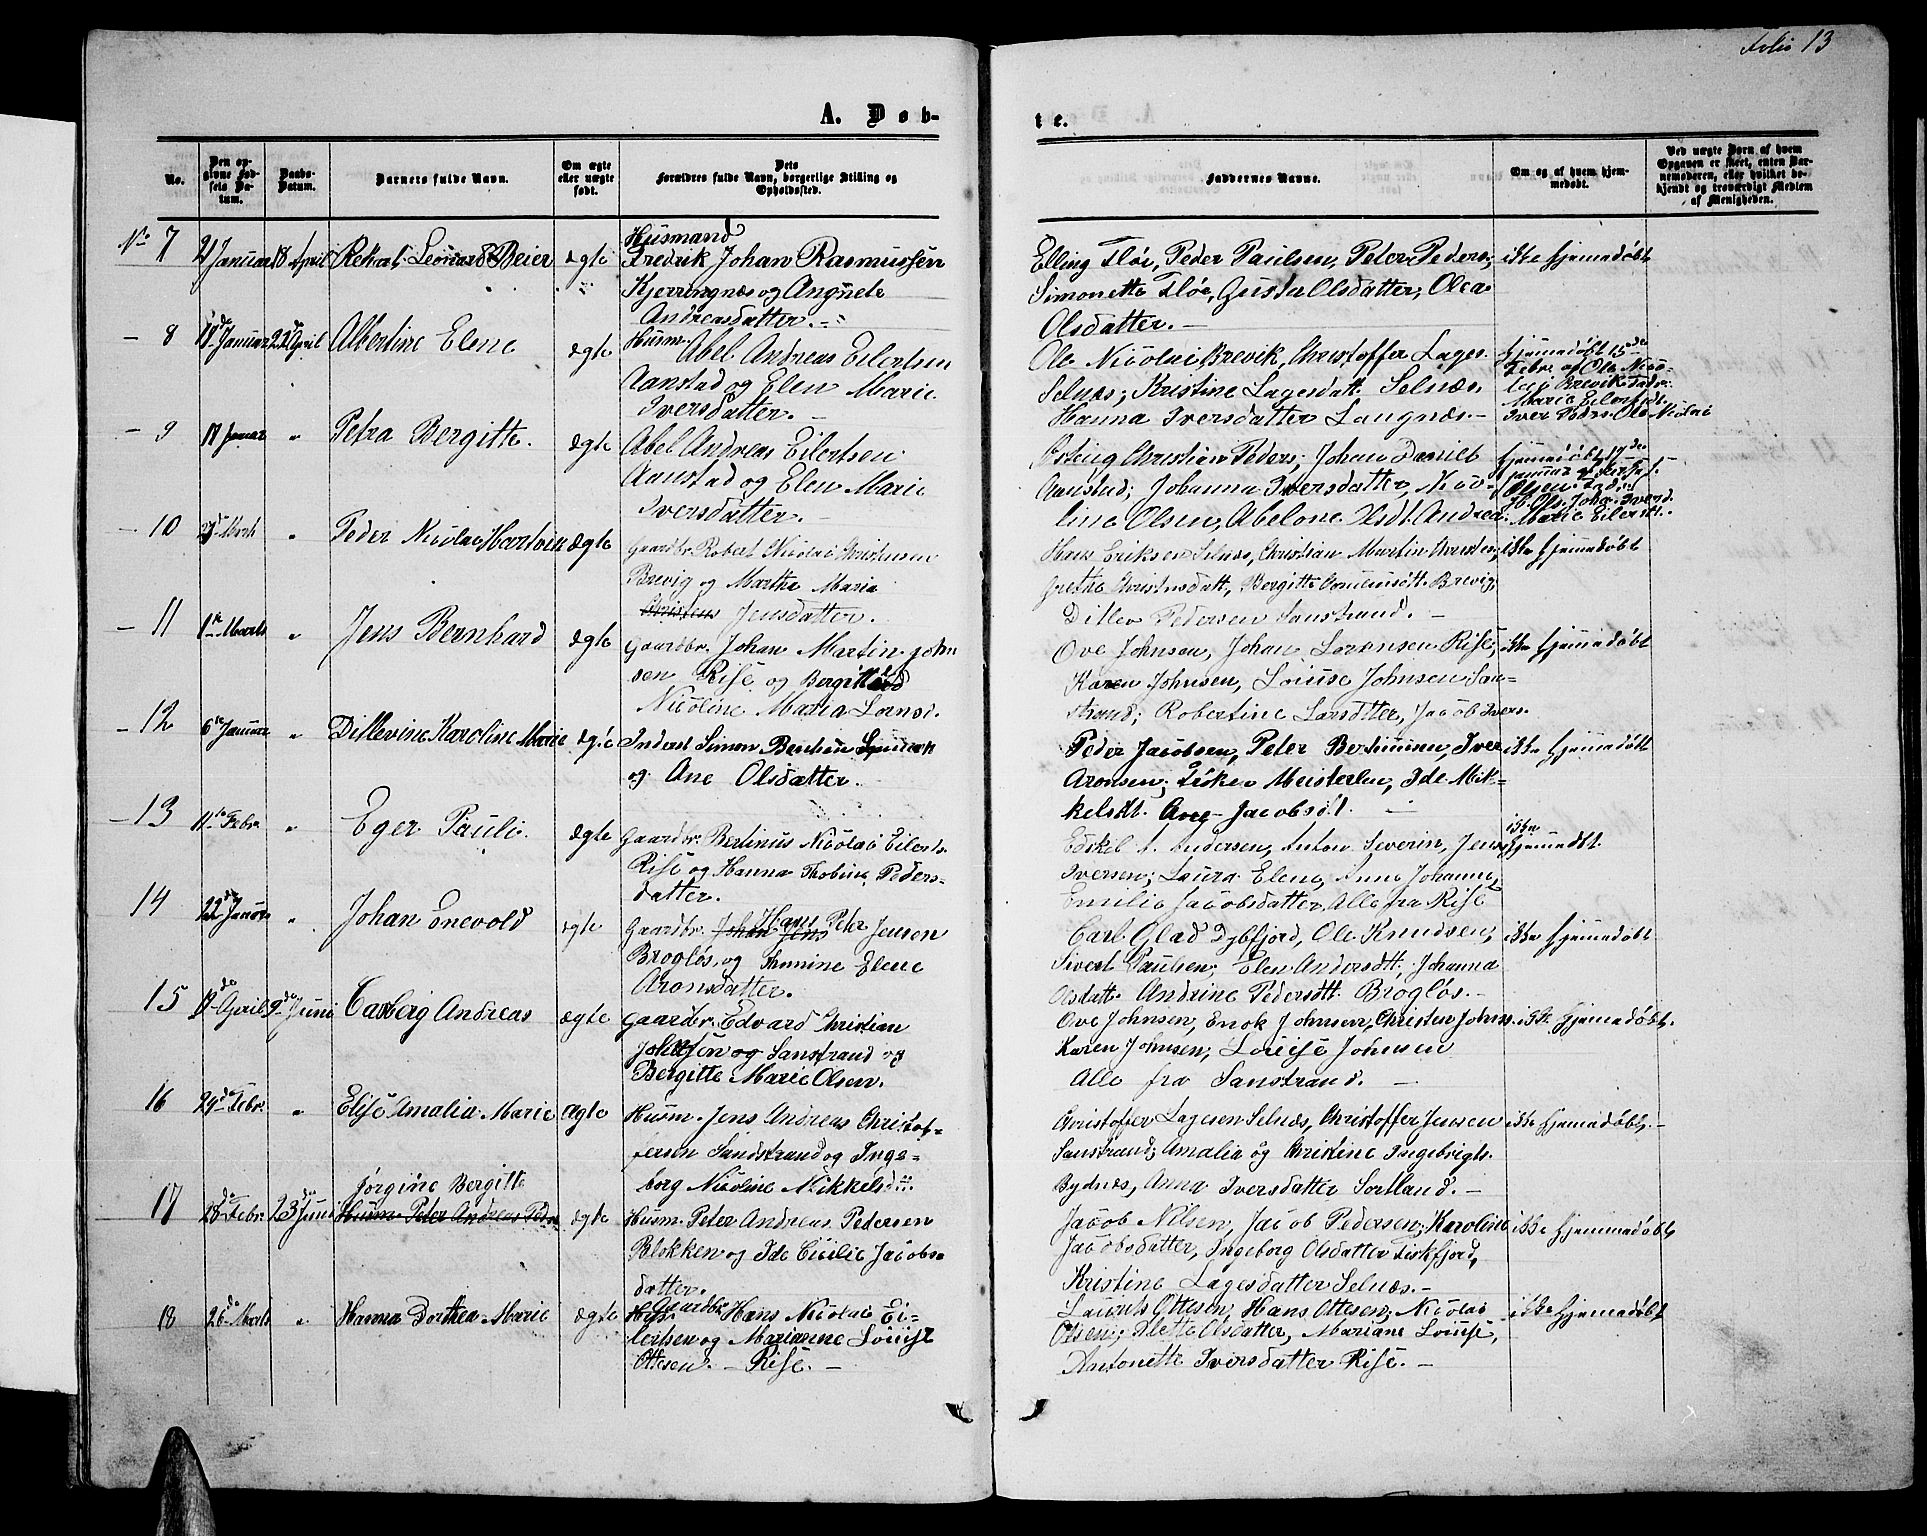 Folio 13
A. Døb-
te.
No.
Den op-
givne Fød-
sels Da-
tum.
Daabs-
Datum.
Barnets fulde Navn.
Om ægte
eller uægte
født.
Dets
Forældres fulde Navn, borgerlige Stilling og
Opholdssted.
Faddernes Navne.
Om og af hvem hjem-
medøbt.
Ved uægte Børn af hvem
Opgaven er skeet, enten Bar-
nemoderen, eller hvilket be-
kjendt og troværdigt Medlem
af Menigheden.
No 7
21 Januar
18 April
Leonard Beier
ægte
Husmand
Fredrik Johan Rasmussen
Kjerringnæs og Angnete
Andreasdatter.
Elling Fløe, Peder Paulsen, Peter Peders,
Simonette Fløe, Gusta Olsdatter, Olea
Olsdatter. –
ikke hjemmedøbt
– 8
Januar
22de April
Albertine Elene
ægte
Husm. Abel Andreas Eilertsen
Aanstad og Elen Marie
Iversdatter. –
Ole Nicolai Brevik, Christoffer Lages.
Selnæs, Kristine Lagesdatt. Selnæs
Hanna Iversdatter Langnæs –
hjemmedøbt 15de
Febr. af Ole Nico-
lai Brevik Fadr.
Marie Eilertsdt.
Iver Peders. Ole Nicolai
– 9
17 Januar
"
Petra Bergitte.
ægte
Abel Andreas Eilertsen
Aanstad og Elen Marie
Iversdatter. –
Østeng Christian Peders, Johan Daniel
Aanstad, Johanna Iversdatter, Nico-
line Olsen, Abelone Olsdt. Andrea
hjemmedøbt 17de
Januar af
Olsen Fad.
Johan. Iversd.
Marie Eilertsdt.
– 10
Marts
"
Peder Nicolai Hartvik
ægte
Gaardbr. Robert Nicolai Christensen
Brevig og Martha Maria
Jensdatter.
Hans Eriksen Selnæs, Christian Martin Christens,
Grethe Christensdatt, Bergitte Brevig,
Ditlev Pedersen Sanstrand. –
ikke hjemmedøbt
– 11
1ste Marts
"
Jens Bernhard
ægte
Gaardbr. Johan Martin John
sen Rise og Bergitte
Nicoline Maria Lornsd.
Ove Johnsen, Johan Lorensen Rise,
Karen Johnsen, Louise Johnsen San-
strand, Robertine Larsdatter, Jacob Ivers.
ikke hjemmedøbt
– 12
6te Januar
"
Ditlevine Karoline Marie
ægte
Inderst Simon
og Ane Olsdatter.
Peder Jacobsen, Peter Iver
Aronsen, Meisterlin, Ide Mik-
kelsdt. Ane Jacobsdt.
ikke hjemmedøbt
– 13
11te Febr.
"
Eger Pauli.
ægte
Gaardbr. Bertinus Nicolai Eilerts.
Rise og Hanna Thobine Peders-
datter.
Edskel A. Andersen, Anton Severin, Jens
Iversen, Laura Elene, Anne Johanna,
Emilie Jacobsdatter Alle fra Rise
ikke
hjemmedbt.
14
22de Januar
"
Johan Enevold
ægte
Gaardbr. Johan Jens Hans Peter Jensen
Brogløs, og Thonine Elene
Aronsdatter.
Carl Glad Dybfjord, Ole Knudsen,
Sivert Paulsen, Elen Andersdtt, Johanna
Olsdatt. Andrine Pedersdtt. Brogløs. –
ikke hjemmedøbt
15
April
9de Juni
Carlberg Andreas
ægte
Gaardbr. Edvard Christian
Johnsen og Sanstrand og
Bergitte Marie Olsen.
Ove Johnsen, Enok Johnsen, Christen Johns.
Karen Johnsen, Louise Johnsen
Alle fra Sanstrand. –
ikke hjemmedøbt.
16
29de Febr.
"
Elise Amalia Marie
ægte
Husm. Jens Andreas Christof-
fersen Sandstrand og Inge-
borg Nicoline Mikkelsd.
Christoffer Lagesen Selnæs, Christoffer Jensen
Sanstrand, Amalia og Christine Ingebrigts.
Bydnæs, Anna Iversdatter Sortland. –
ikke hjemmedøbt. –
17
28de Febr.
23de Juni
Jørgine Bergitte
Husm. Peter Andreas Peder
ægte
Husm. Peter Andreas Pedersen
Blokken og Ide Cicilie Jacobs-
datter.
Jacob Nilsen, Jacob Pedersen, Karoline
Jacobsdatter, Ingeborg Olsdatter Fiskfjord,
Kristine Lagesdatter Selnæs. –
ikke hjemmedøbt
18
26de Marts
"
Hanna Dorthea Marie
ægte
Gaardbr. Hans Nicolai Ei-
lertsen og Marianne Louise
Ottesen. – Rise. –
Laurits Ottesen, Hans Ottesen, Nicolai
Olsen, Alette Olsdatter, Mariane Louise,
Antonette Iversdatter Rise. –
ikke hjemmedøbt